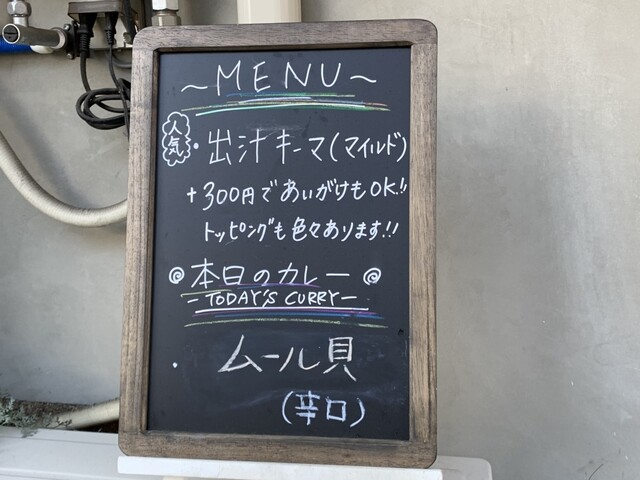 ～MENU～
人気・出汁キーマ(マイルド)
+300円であいがけもOK!!
トッピングも色々あります!!
◎本日のカレー◎
-TODAY'S CURRY-
・ムール貝
(辛口)